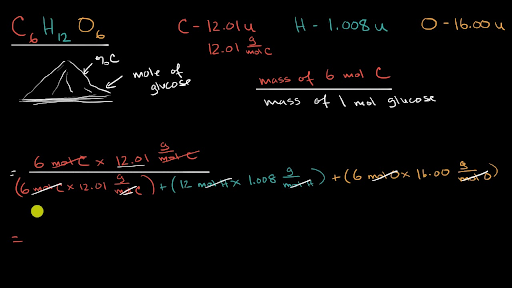 C₆H₁₂O₆ C - 12.01 u H - 1.008 u O - 16.00 u
12.01 g/mol C
%C
mole of glucose
mass of 6 mol C
mass of 1 mol glucose
= 6 mol C × 12.01 g/mol C
(6 mol C × 12.01 g/mol C) + (12 mol H × 1.008 g/mol H) + (6 mol O × 16.00 g/mol O)
=